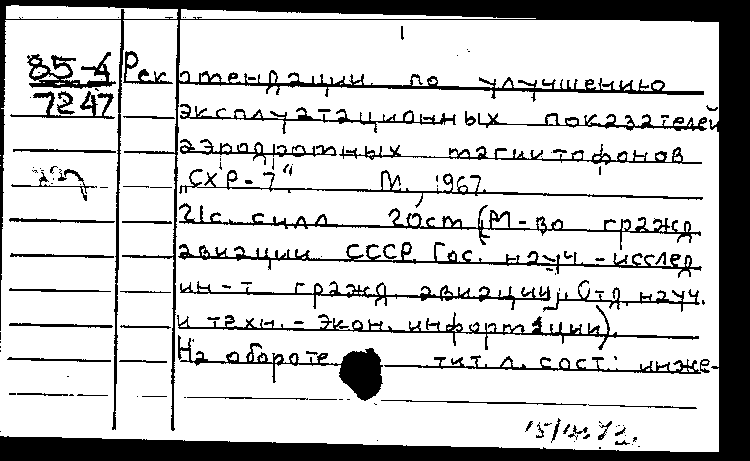 1
85-4
7247
Рекомендации по улучшению
эксплуатационных показателей
аэродромных магнитофонов
„СХР-7“ М., 1967.
21с. с илл 20см (М-во гражд
авиации СССР. Гос. науч.-исслед
ин-т гражд. авиации. Отд. науч.
и техн.-экон. информации).
На обороте тит. л. сост.: инже-